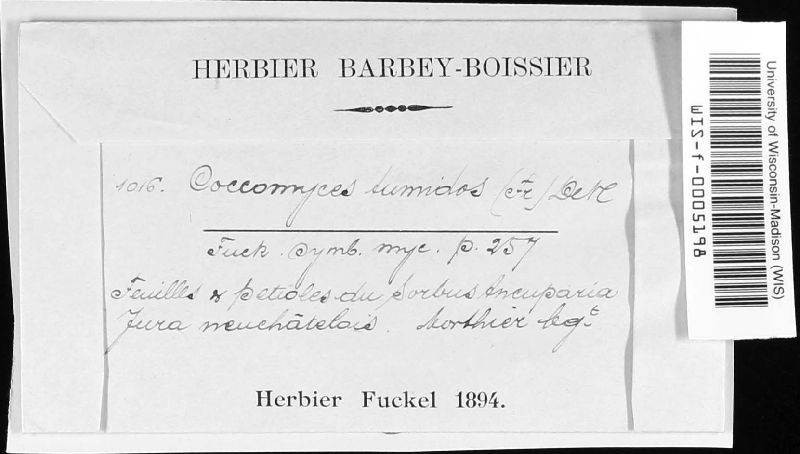 HERBIER BARBEY-BOISSIER
1016. Coccomyces tumidos (Fr) DeN
Fuck. Symb. myc. p. 257
Feuilles & petioles du Sorbus Aucuparia
Jura neuchâtelois. Morthier lgt
Herbier Fuckel 1894.
University of Wisconsin-Madison (WIS)
WIS-f-0005198